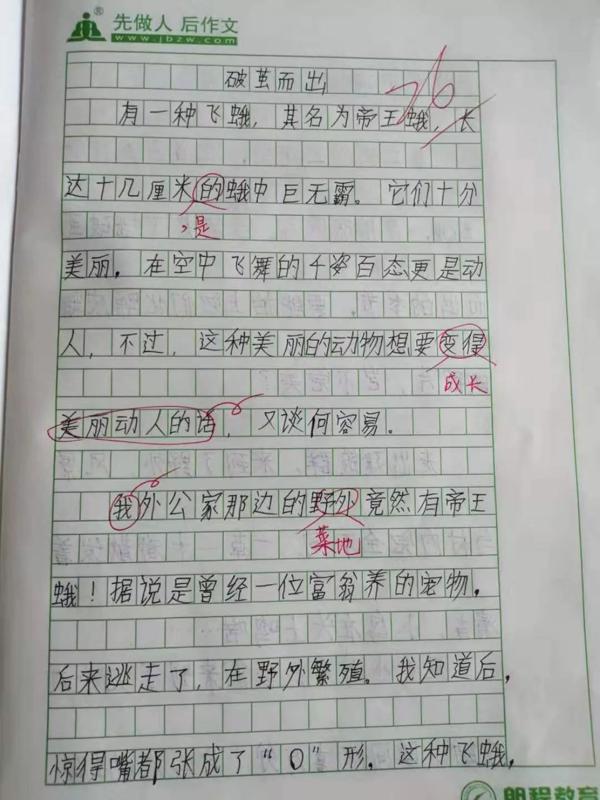 先做人 后作文
www.jbzw.com
破茧而出
26
有一种飞蛾，其名为帝王蛾，长
达十几厘米的蛾中巨无霸。它们十分
，是
美丽，在空中飞舞的千姿百态更是动
人，不过，这种美丽的动物想要变得
成长
美丽动人的话，又谈何容易.
我外公家那边的野外竟然有帝王
菜地
蛾！据说是曾经一位富翁养的宠物，
后来逃走了，在野外繁殖。我知道后，
惊得嘴都张成了“O”形.这种飞蛾，
朗程教育